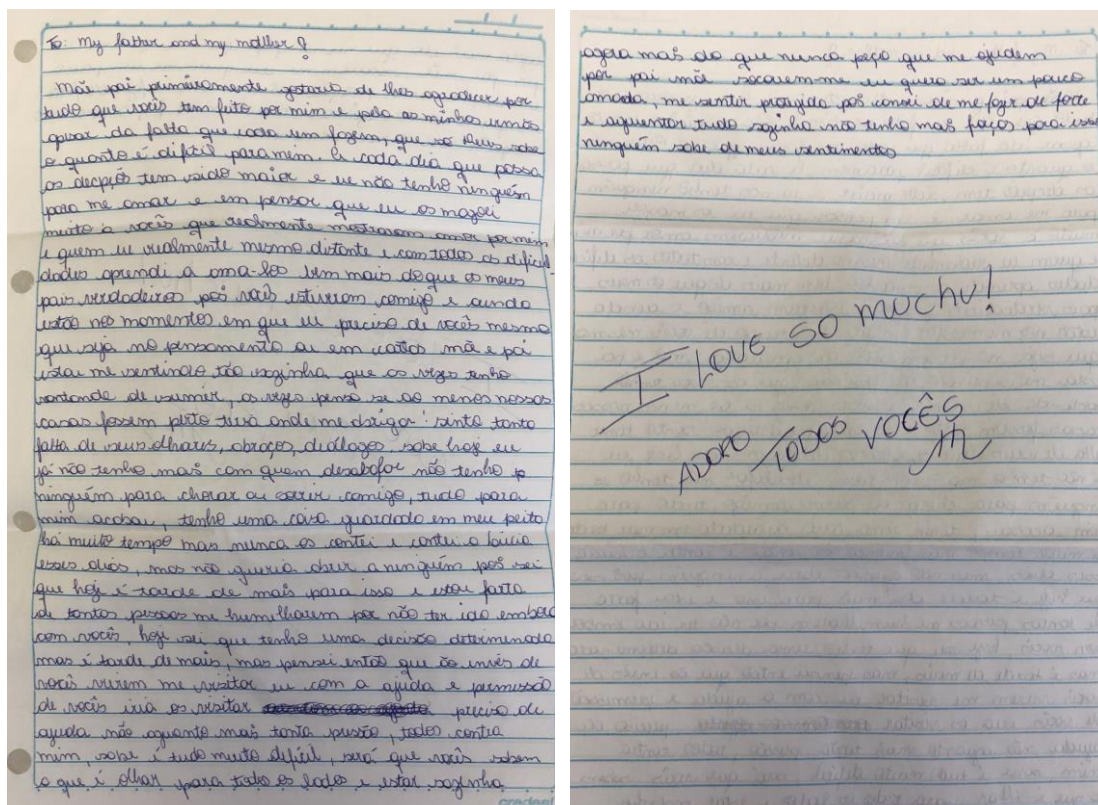 To: My father and my mother!
Mãe pai primeiramente gostaria de lhes agradecer por
tudo que vocês tem feito por mim e pela as minhas irmãs
apesar da falta que cada um fazem, que só Deus sabe
o quanto é difícil para mim. E cada dia que passa
as decpçõs tem sido maior e eu não tenho ninguém
para me amar e em pensar que eu os magoei
muito a vocês que realmente mostraram amor por mim
e quem eu realmente mesmo distante e com todas as dificul-
dades aprendi a ama-los bem mais do que os meus
pais verdadeiros pos vocês estiveram comigo e ainda
estão nos momentos em que eu preciso de vocês mesmo
que seja no pensamento ou em cartas mãe e pai
estou me sentindo tão sozinha que as vezes tenho
vontande de sumir, as vezes penso se ao menos nossas
casas fossem perto teria onde me abrigar sinto tanto
falta de seus olhares, abraços, diálogos, sabe hoje eu
já não tenho mais com quem desabafar não tenho
ninguém para chorar ou sorrir comigo, tudo para
mim acabou, tenho uma coisa guardada em meu peito
há muito tempo mas nunca os contei e contei a
esses dias, mas não queria abrir a ninguém pos sei
que hoje é tarde de mais para isso e estou farta
de tantas pessoas me humilharem por não ter ido embora
com vocês, hoje sei que tenho uma decisão determinada
mas é tarde de mais, mas pensei então que ao invés de
vocês virem me visitar eu com a ajuda e permissão
de vocês iria os visitar preciso de
ajuda não aguento mais tanta pressão, todos contra
mim, sabe é tudo muito difícil, será que vocês sabem
o que é olhar para todos os lados e estar sozinha
credeal
agora mais do que nunca peço que me ajudem
por pai mãe socorem-me eu quero ser um pouco
amada, me sentir protegida pos cansei de me fazer de forte
e aguentar tudo sozinha não tenho mas forças para isso
ninguém sabe de meus sentimentos
I LOVE SO MUCHU!
ADORO TODOS VOCÊS